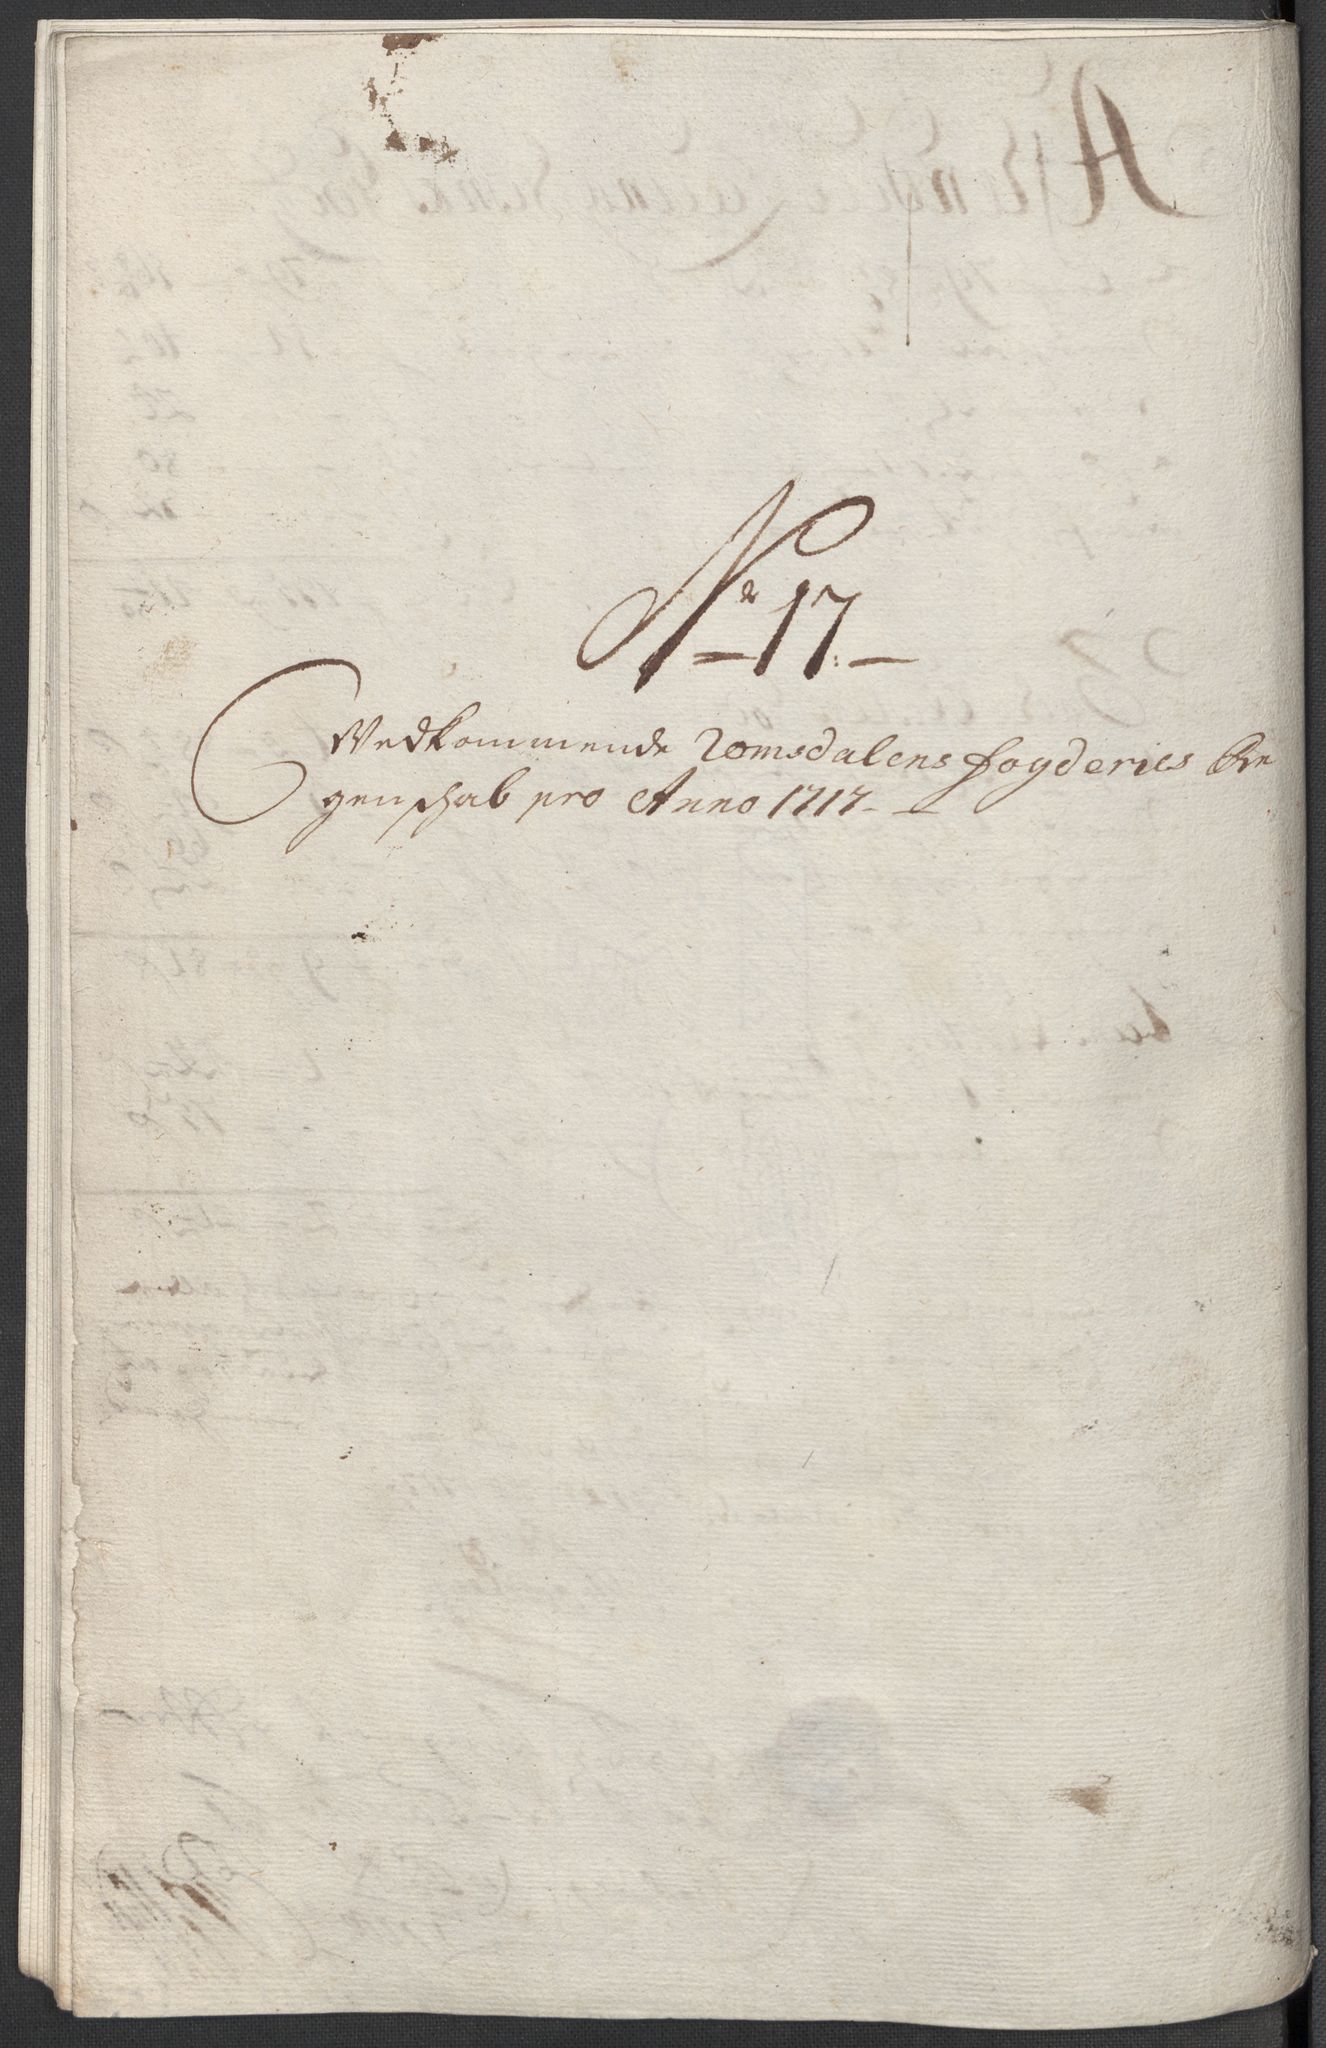 No 17.
Vedkommende Romsdalens fogderies Re
genschab pro Anno 1717.